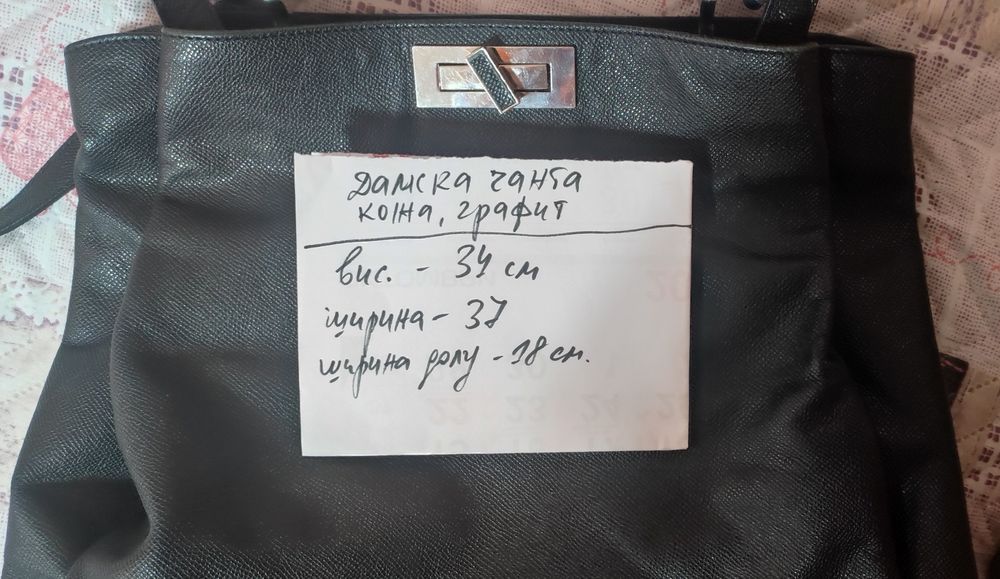 Дамска чанта
кожа, графит
вис. - 34 см
ширина - 37
ширина долу - 18 см.